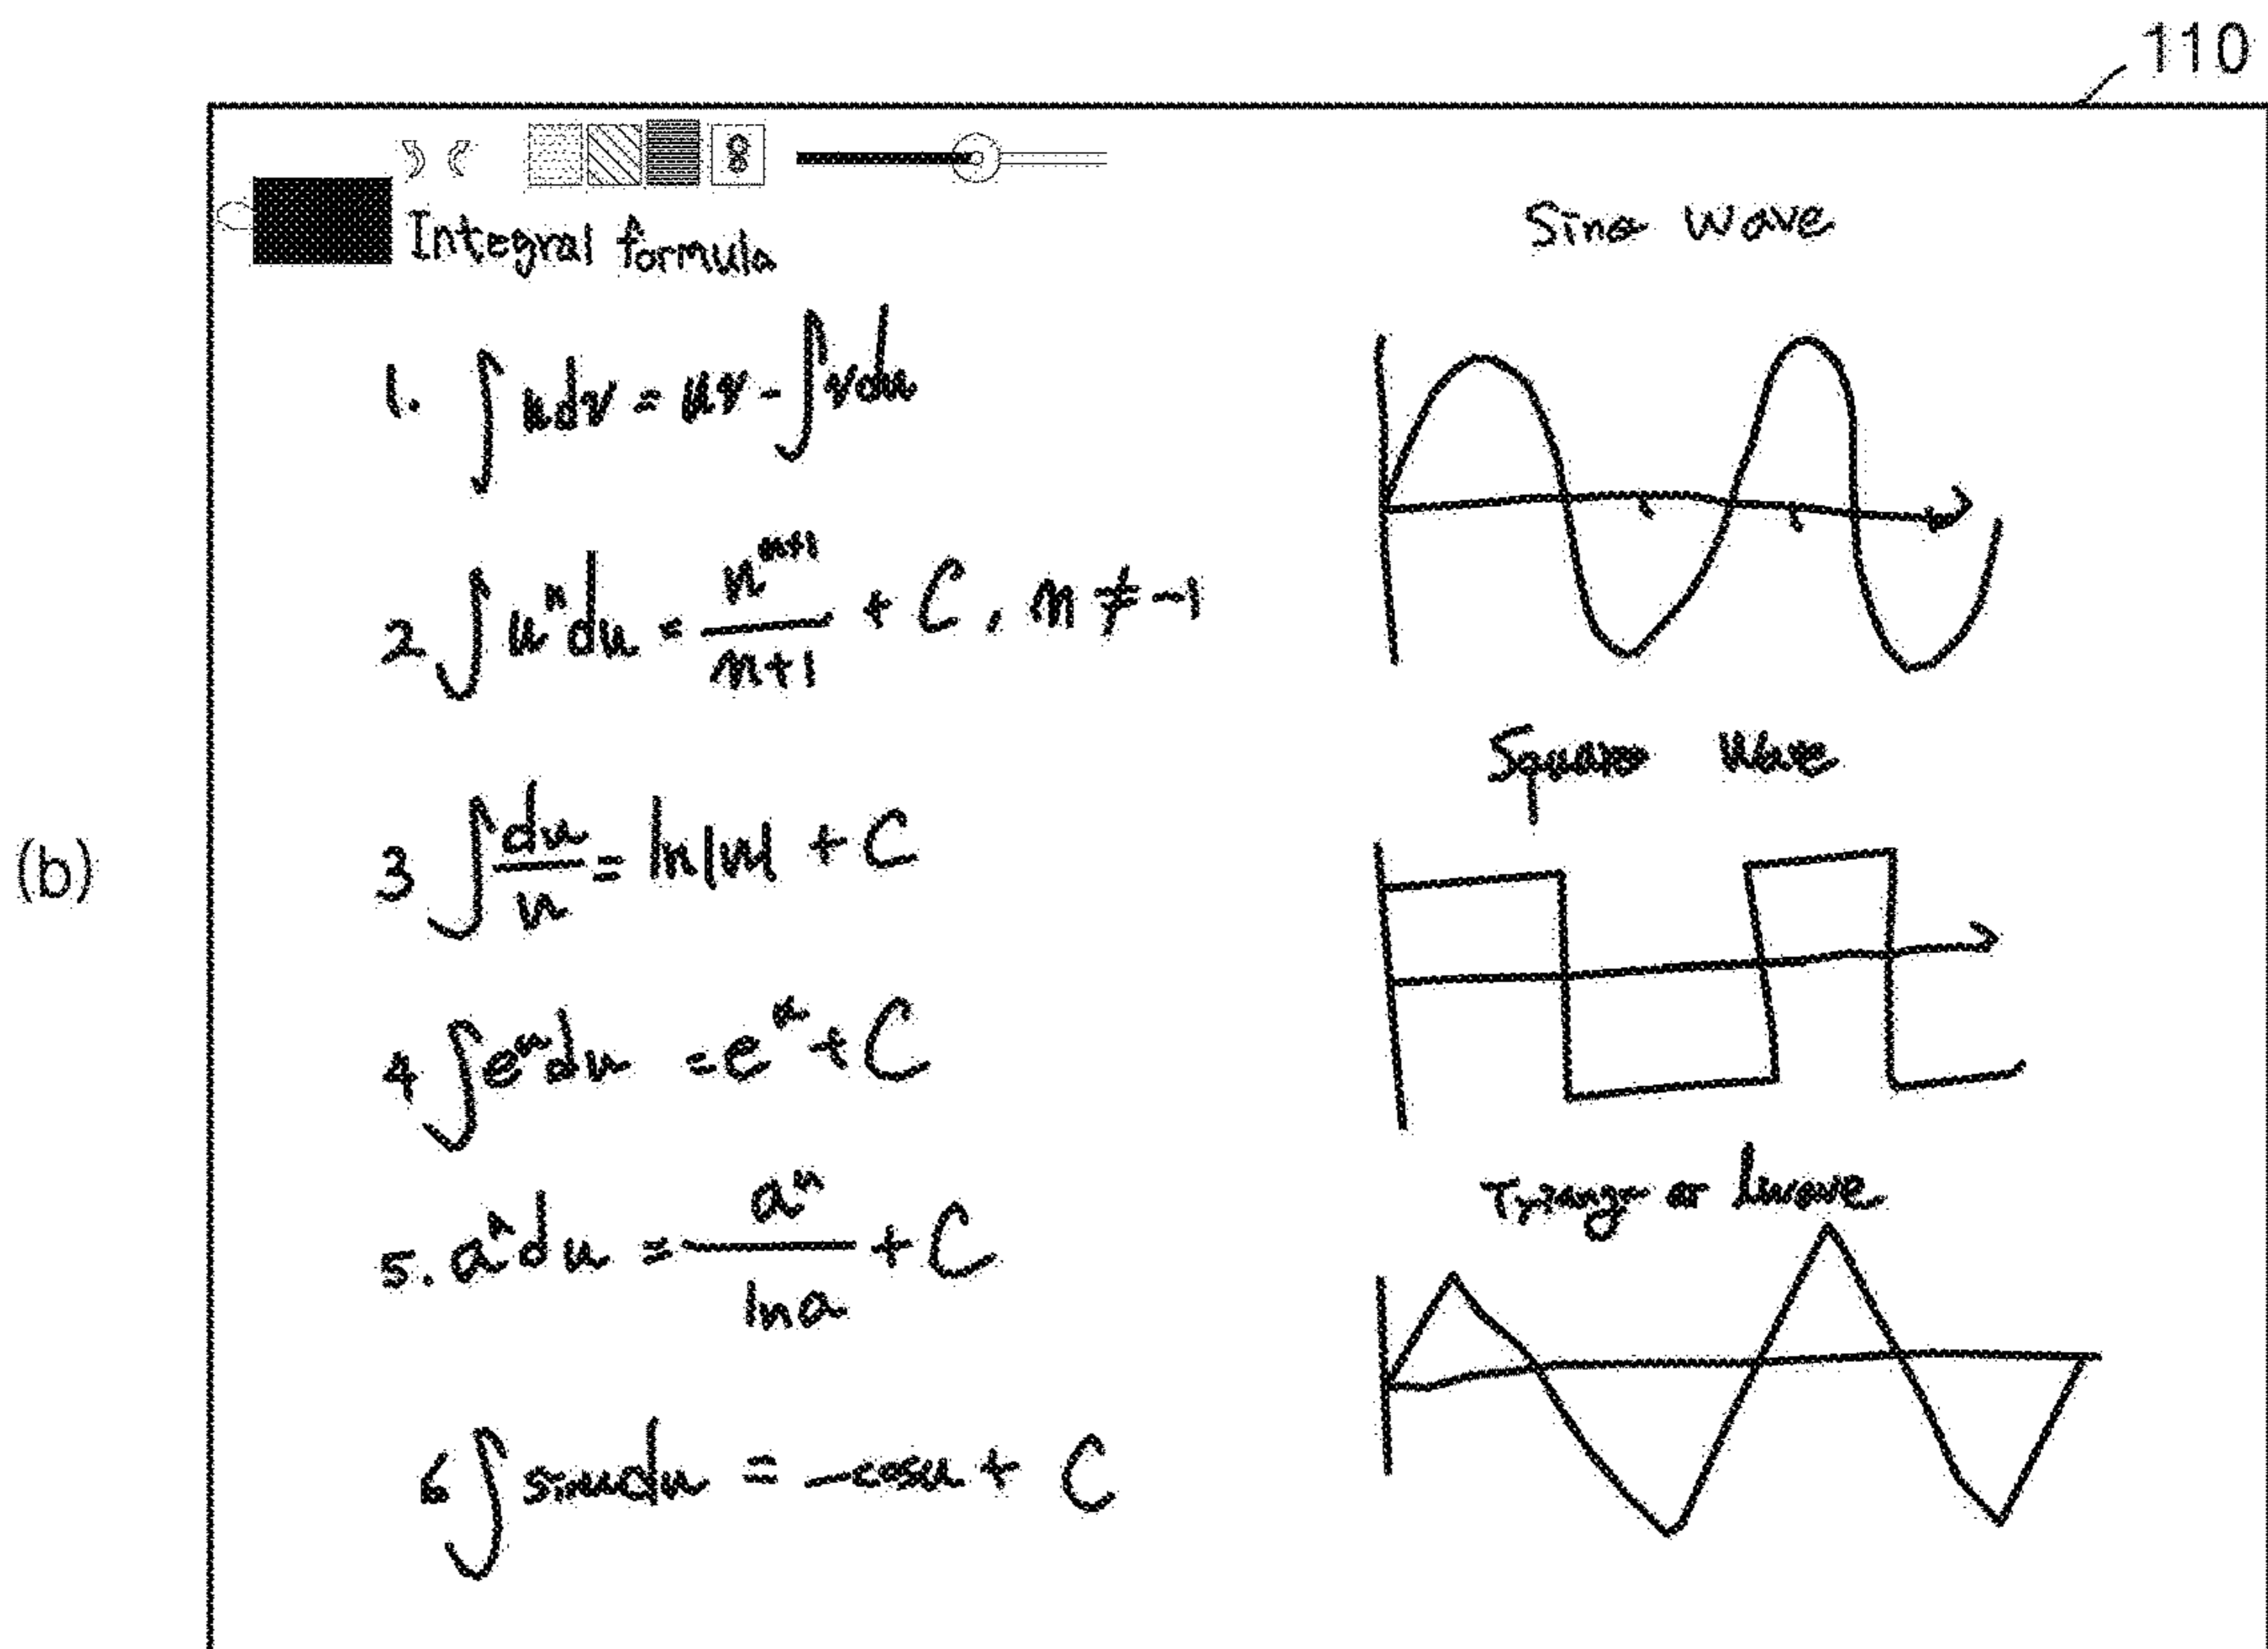 110
(b)
Integral formula
1. ∫udv = uv - ∫vdu
2 ∫uⁿdu = n^(n+1)/(n+1) + C, n ≠ -1
3 ∫du/u = ln|u| + C
4 ∫eᵘdu = eᵘ + C
5. aᵘdu = aᵘ/ln a + C
6 ∫sinudu = -cosu + C
Sine wave
Square wave
wave